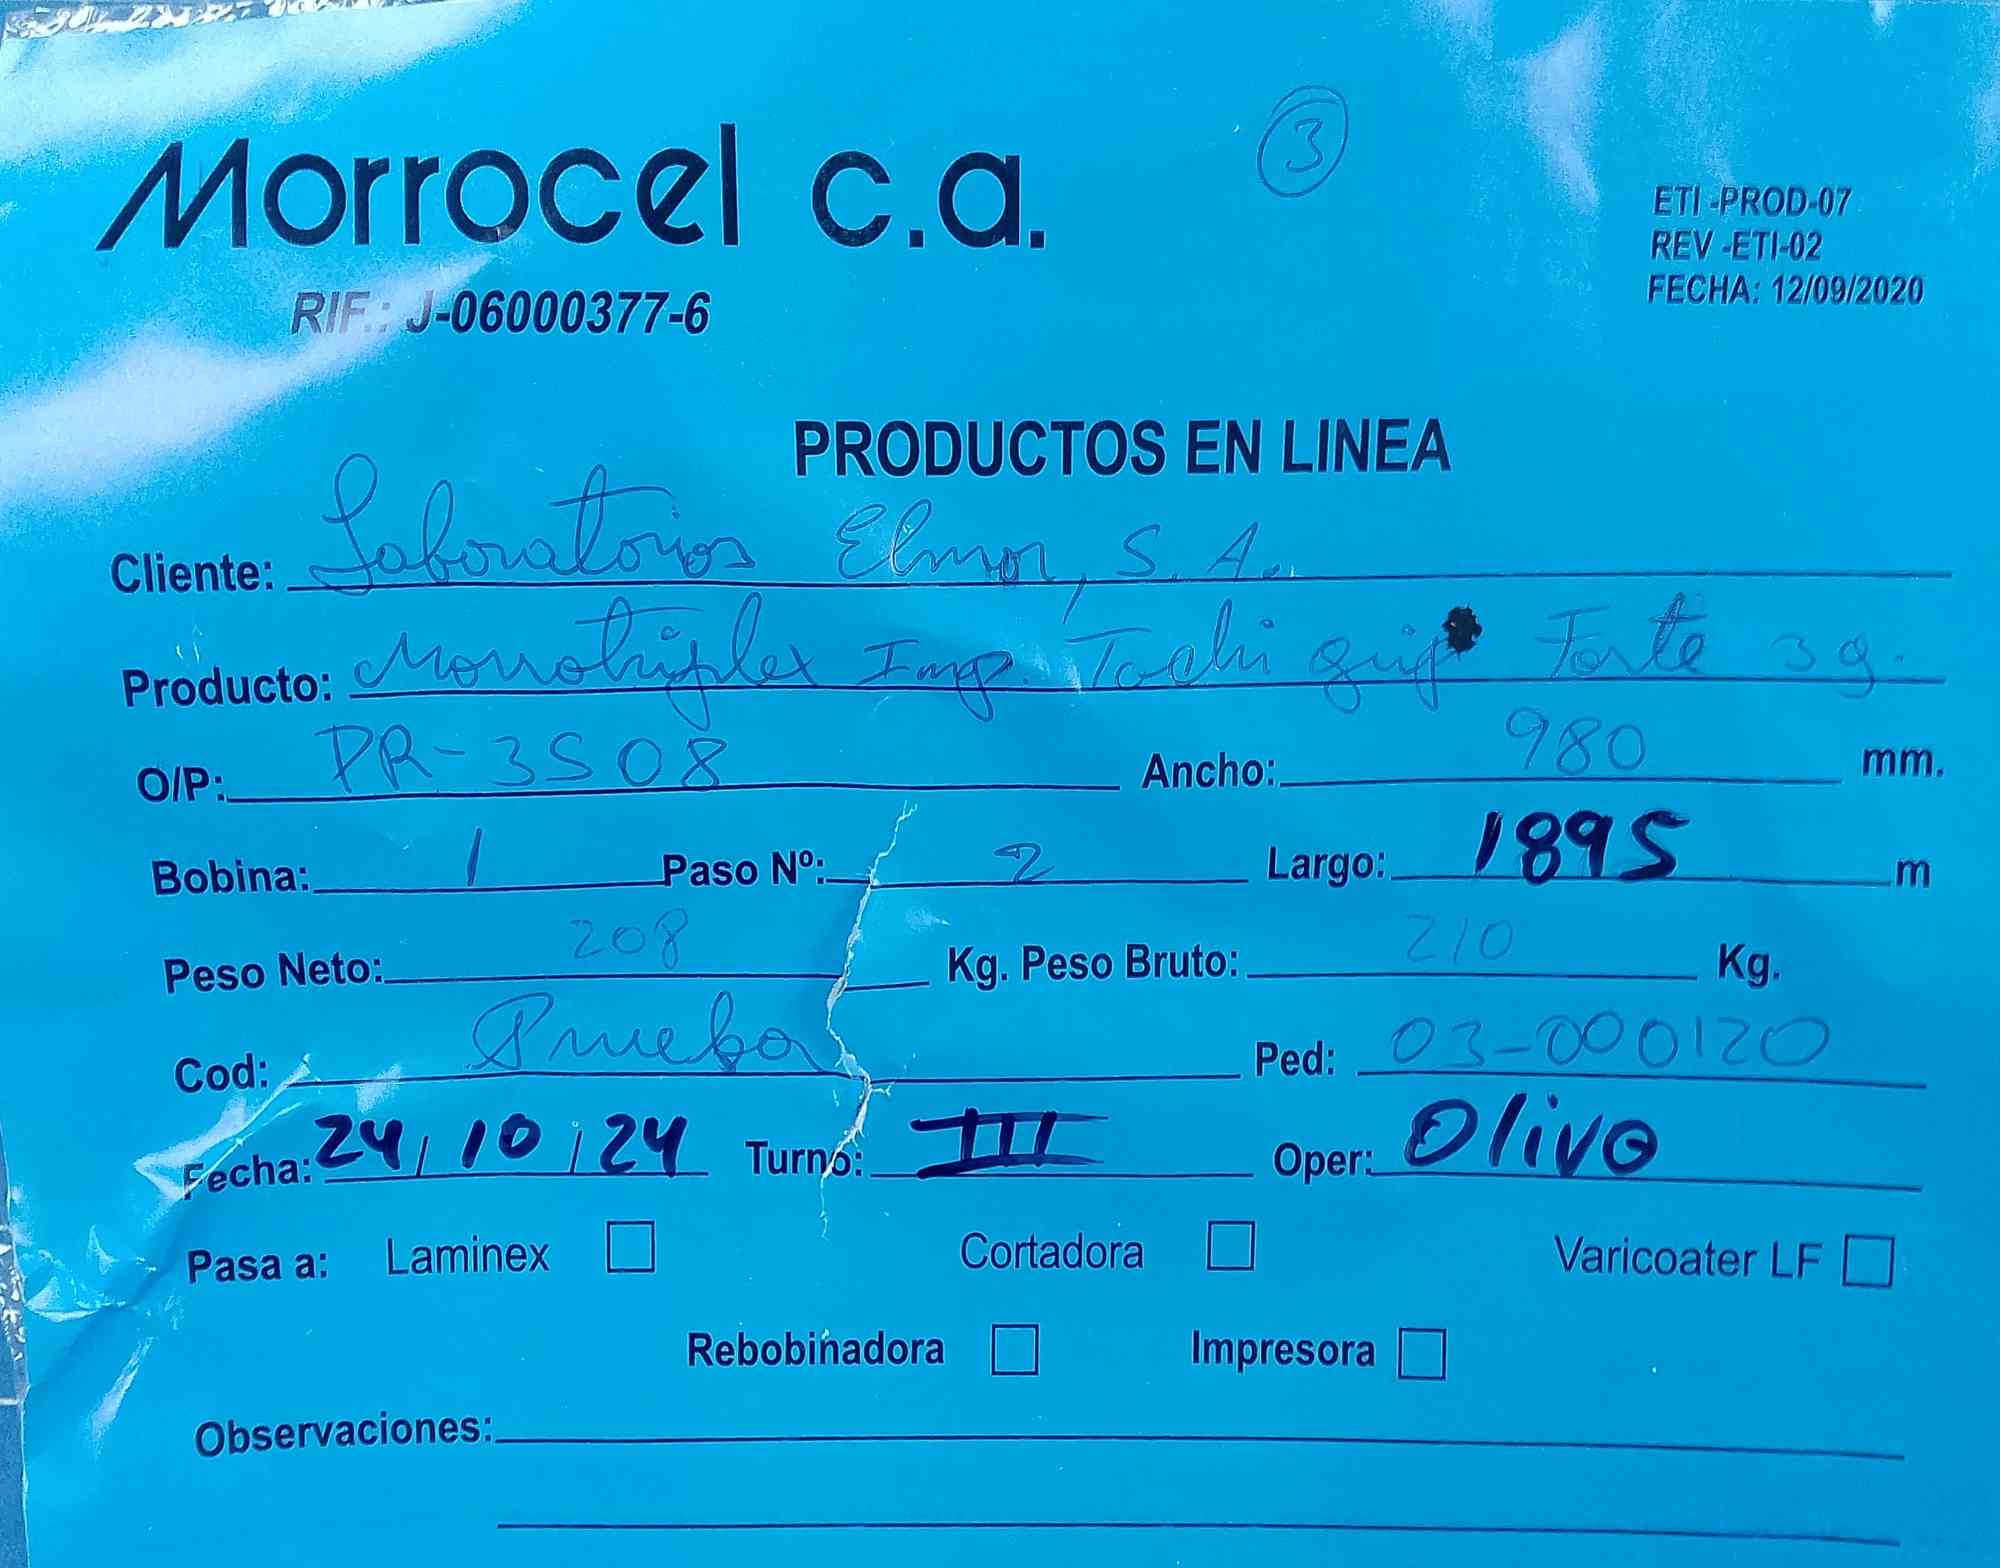 Morrocel c.a.
3
RIF.: J-06000377-6
ETI -PROD-07
REV -ETI-02
FECHA: 12/09/2020
PRODUCTOS EN LINEA
Cliente: Laboratorios Elmor, S.A.
Producto: Imp. Forte 3g.
O/P: PR-3508 Ancho: 980 mm.
Bobina: 1 Paso Nº: 2 Largo: 1895 m
Peso Neto: 208 Kg. Peso Bruto: 210 Kg.
Cod: Prueba Ped: 03-000120
Fecha: 24/10/24 Turno: III Oper: Olivo
Pasa a: Laminex Cortadora Varicoater LF
Rebobinadora Impresora
Observaciones: